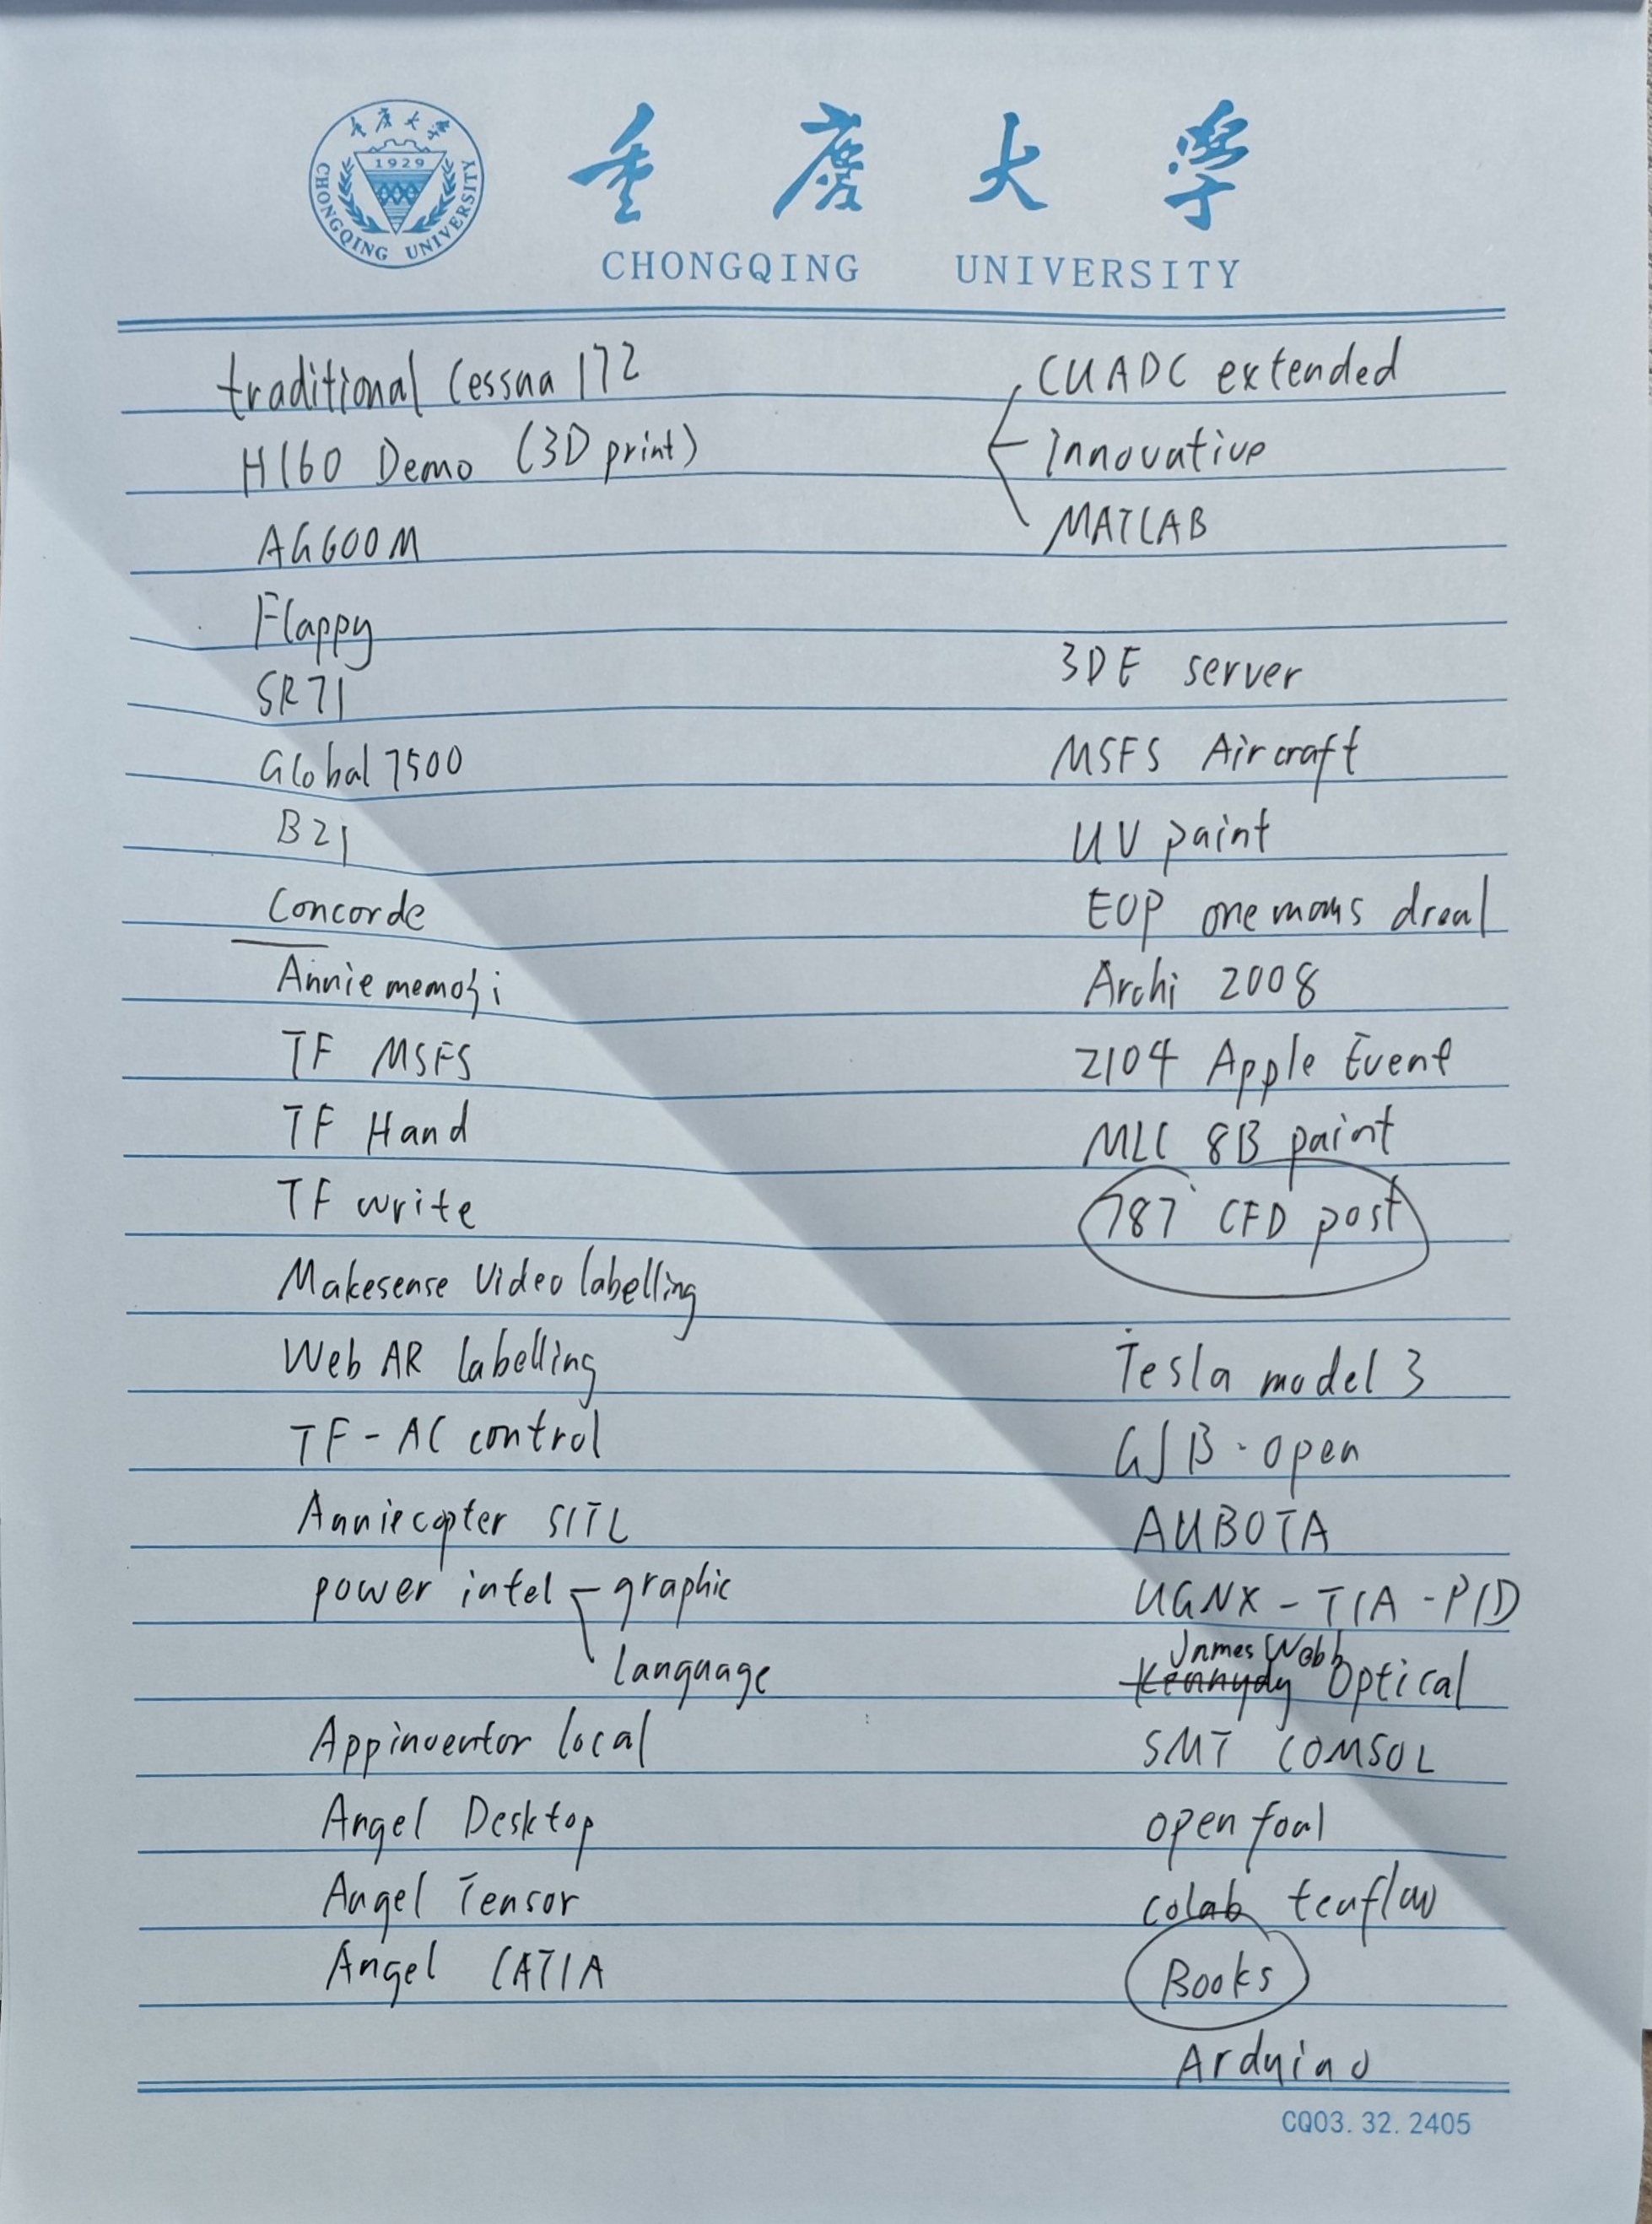 重庆大学
1929
CHONGQING UNIVERSITY
重庆大学
CHONGQING UNIVERSITY
traditional Cessna 172
H160 Demo (3D print)
AG600M
Flappy
SR71
Global 7500
B21
Concorde
Annie memoji
TF MSFS
TF Hand
TF write
Makesense Video labelling
Web AR labelling
TF-AC control
Anniecopter SITL
power intel - graphic
language
Appinventor local
Angel Desktop
Angel Tensor
Angel CATIA
CUADC extended
Innovative
MATLAB
3DE server
MSFS Aircraft
UV paint
EOP one
Archi 2008
2104 Apple Event
MLC 8B paint
787 CFD post
Tesla model 3
GJB-open
AUBOTA
UGNX-TIA-PID
James Webb
Kennydy Optical
SMT COMSOL
open foal
colab tenflow
Books
Arduino
CQ03.32.2405